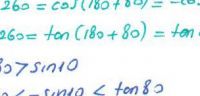 260 = cos(180+80) = -co
260 = tan(180+80) = tan
80 > sin10
< -sin10 < tan80